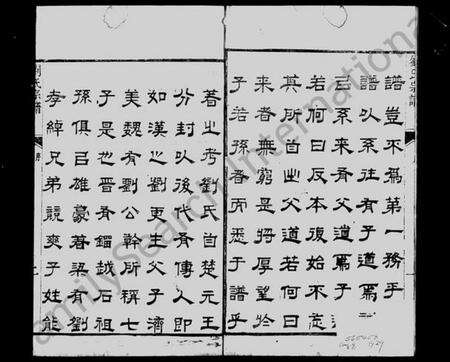 譜豈不為第一務乎
譜以系往有子道焉
系来有父道焉子
若何曰反本復始不忘
其所自出父道若何曰
来者無窮是将厚望於
子若孫者而悉于譜乎
著之考劉氏自楚元王
分封以後代有傳人即
如漢之劉更生父子濟
美魏有劉公幹所稱七
子是也晉有錕越石祖
孫俱以雄豪著梁有劉
孝綽兄弟競爽子姓能
劉氏宗譜
FamilySearch International